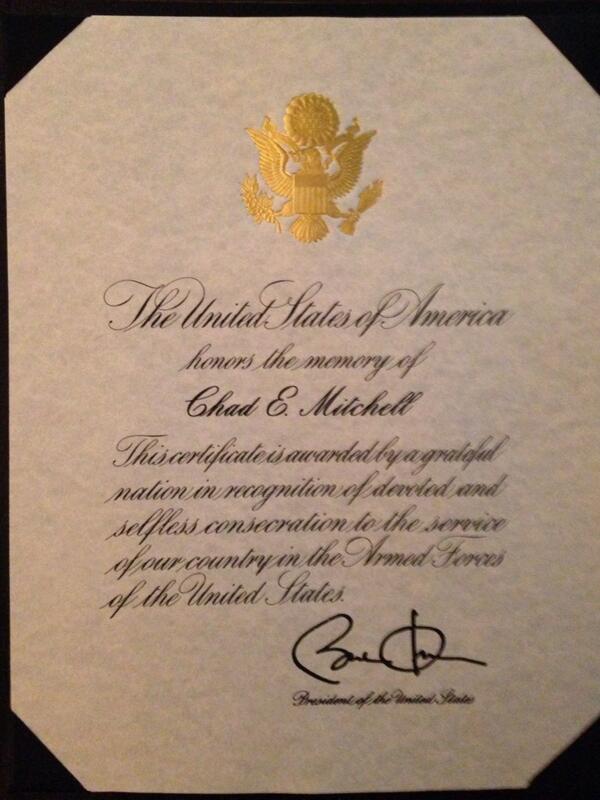 The United States of America
honors the memory of
Chad E. Mitchell
This certificate is awarded by a grateful
nation in recognition of devoted and
selfless consecration to the service
of our country in the Armed Forces
of the United States.
President of the United States